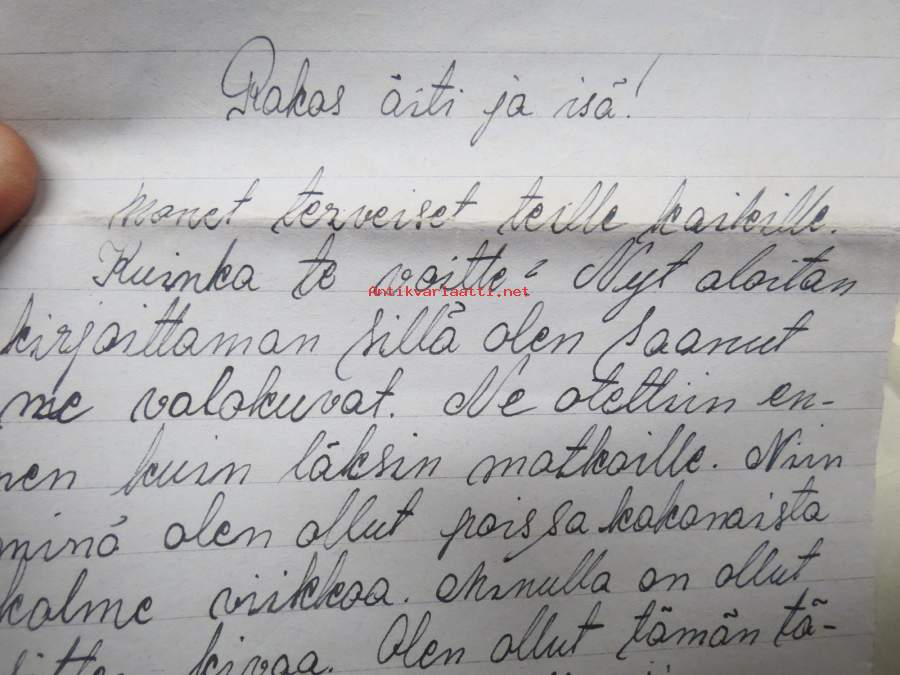 Rakas äiti ja isä!
Monet terveiset teille kaikille.
Kuinka te voitte? Nyt aloitan
Antikvariaatti.net
kirjoittaman sillä olen saanut
me valokuvat. Ne otettiin en-
nen kuin läksin matkoille. Niin
minä olen ollut poissa kokonaista
kolme viikkoa. Minulla on ollut
kivaa. Olen ollut tämän tä-